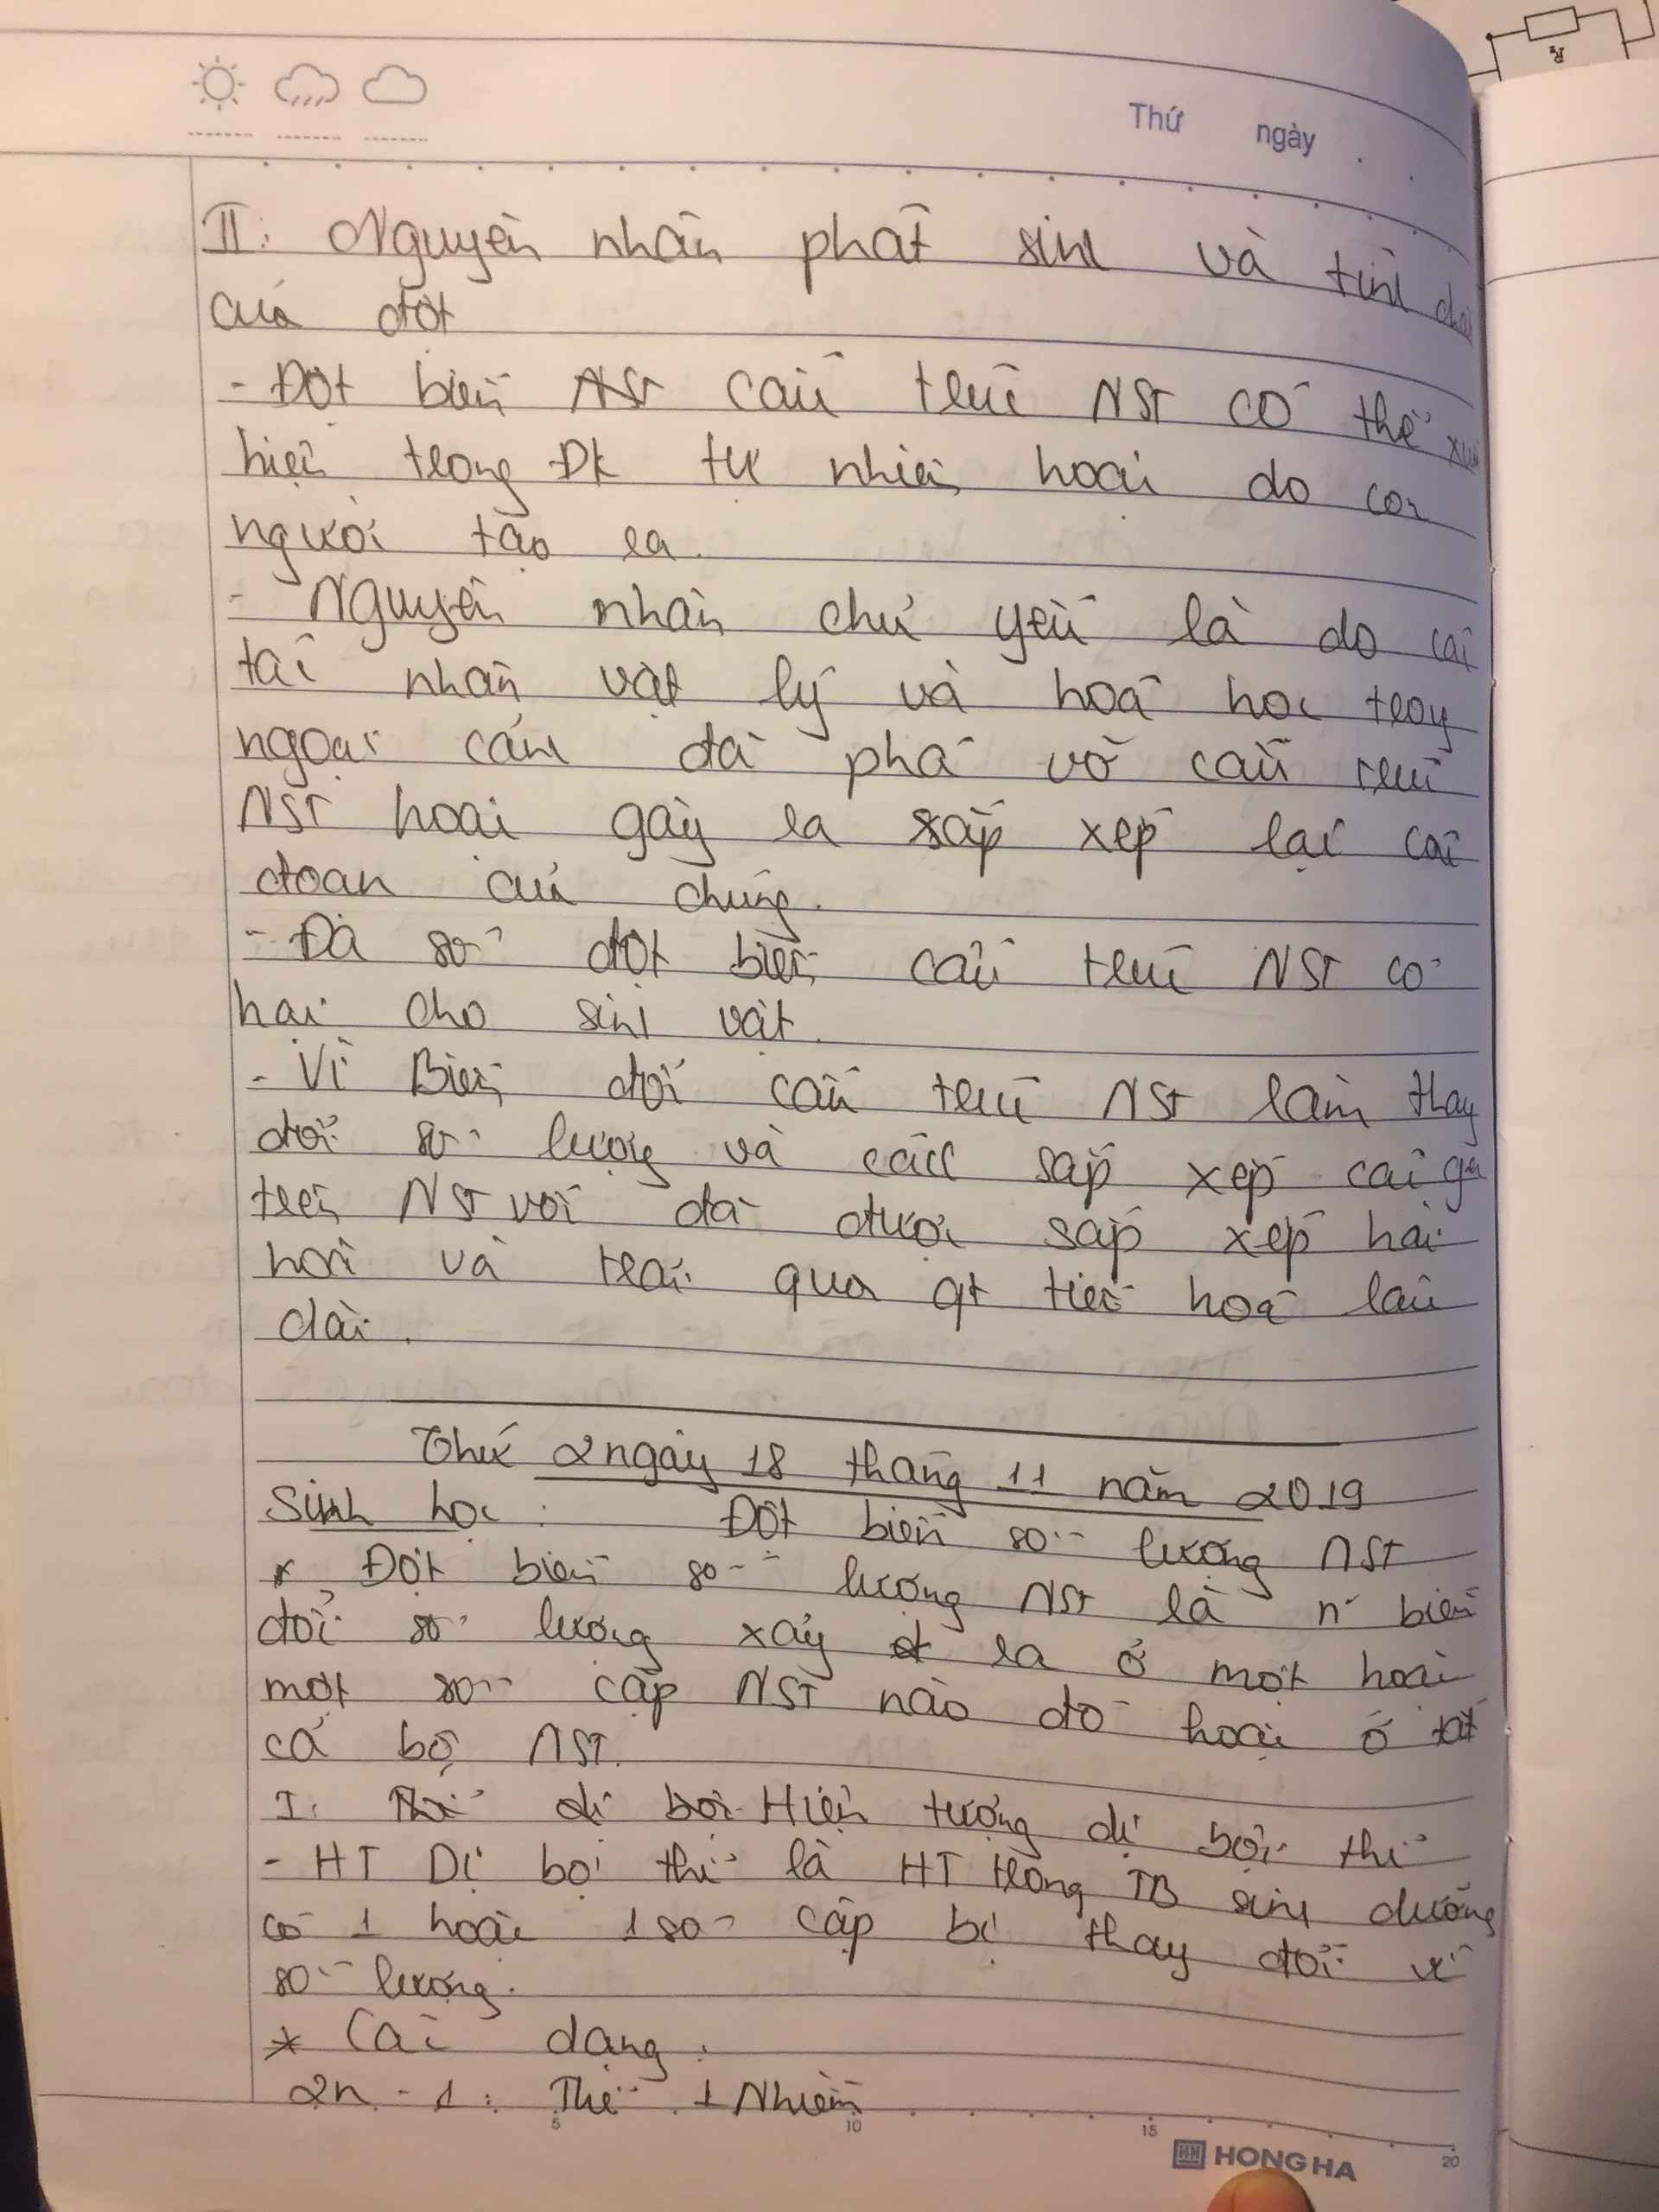 Thứ ngày
II. Nguyên nhân phát sinh và tính chất
của đột
- Đột biến NST cấu trúc NST có thể xuất
hiện trong ĐK tự nhiên hoặc do con
người tạo ra.
- Nguyên nhân chủ yếu là do các
tác nhân vật lý và hoá học trong
ngoại cảnh đã phá vỡ cấu trúc
NST hoặc gây ra sắp xếp lại các
đoạn của chúng.
- Đa số đột biến cấu trúc NST có
hại cho sinh vật.
- Vì Biến đổi cấu trúc NST làm thay
đổi số lượng và cách sắp xếp các gen
trên NST vốn đã được sắp xếp hài
hoà và trải qua qt tiến hoá lâu
dài.
Thứ 2 ngày 18 tháng 11 năm 2019
Sinh học : Đột biến số lượng NST
* Đột biến số lượng NST là n~ biến
đổi số lượng xảy ra ở một hoặc
một số cặp NST nào đó hoặc ở tất
cả bộ NST.
I. Thể dị bội Hiện tượng dị bội thể
- HT Dị bội thể là HT trong TB sinh dưỡng
có 1 hoặc 1 số cặp bị thay đổi về
số lượng.
* Các dạng :
2n - 1 : Thể 1 Nhiễm
5 10 15 20
HN HONG HA